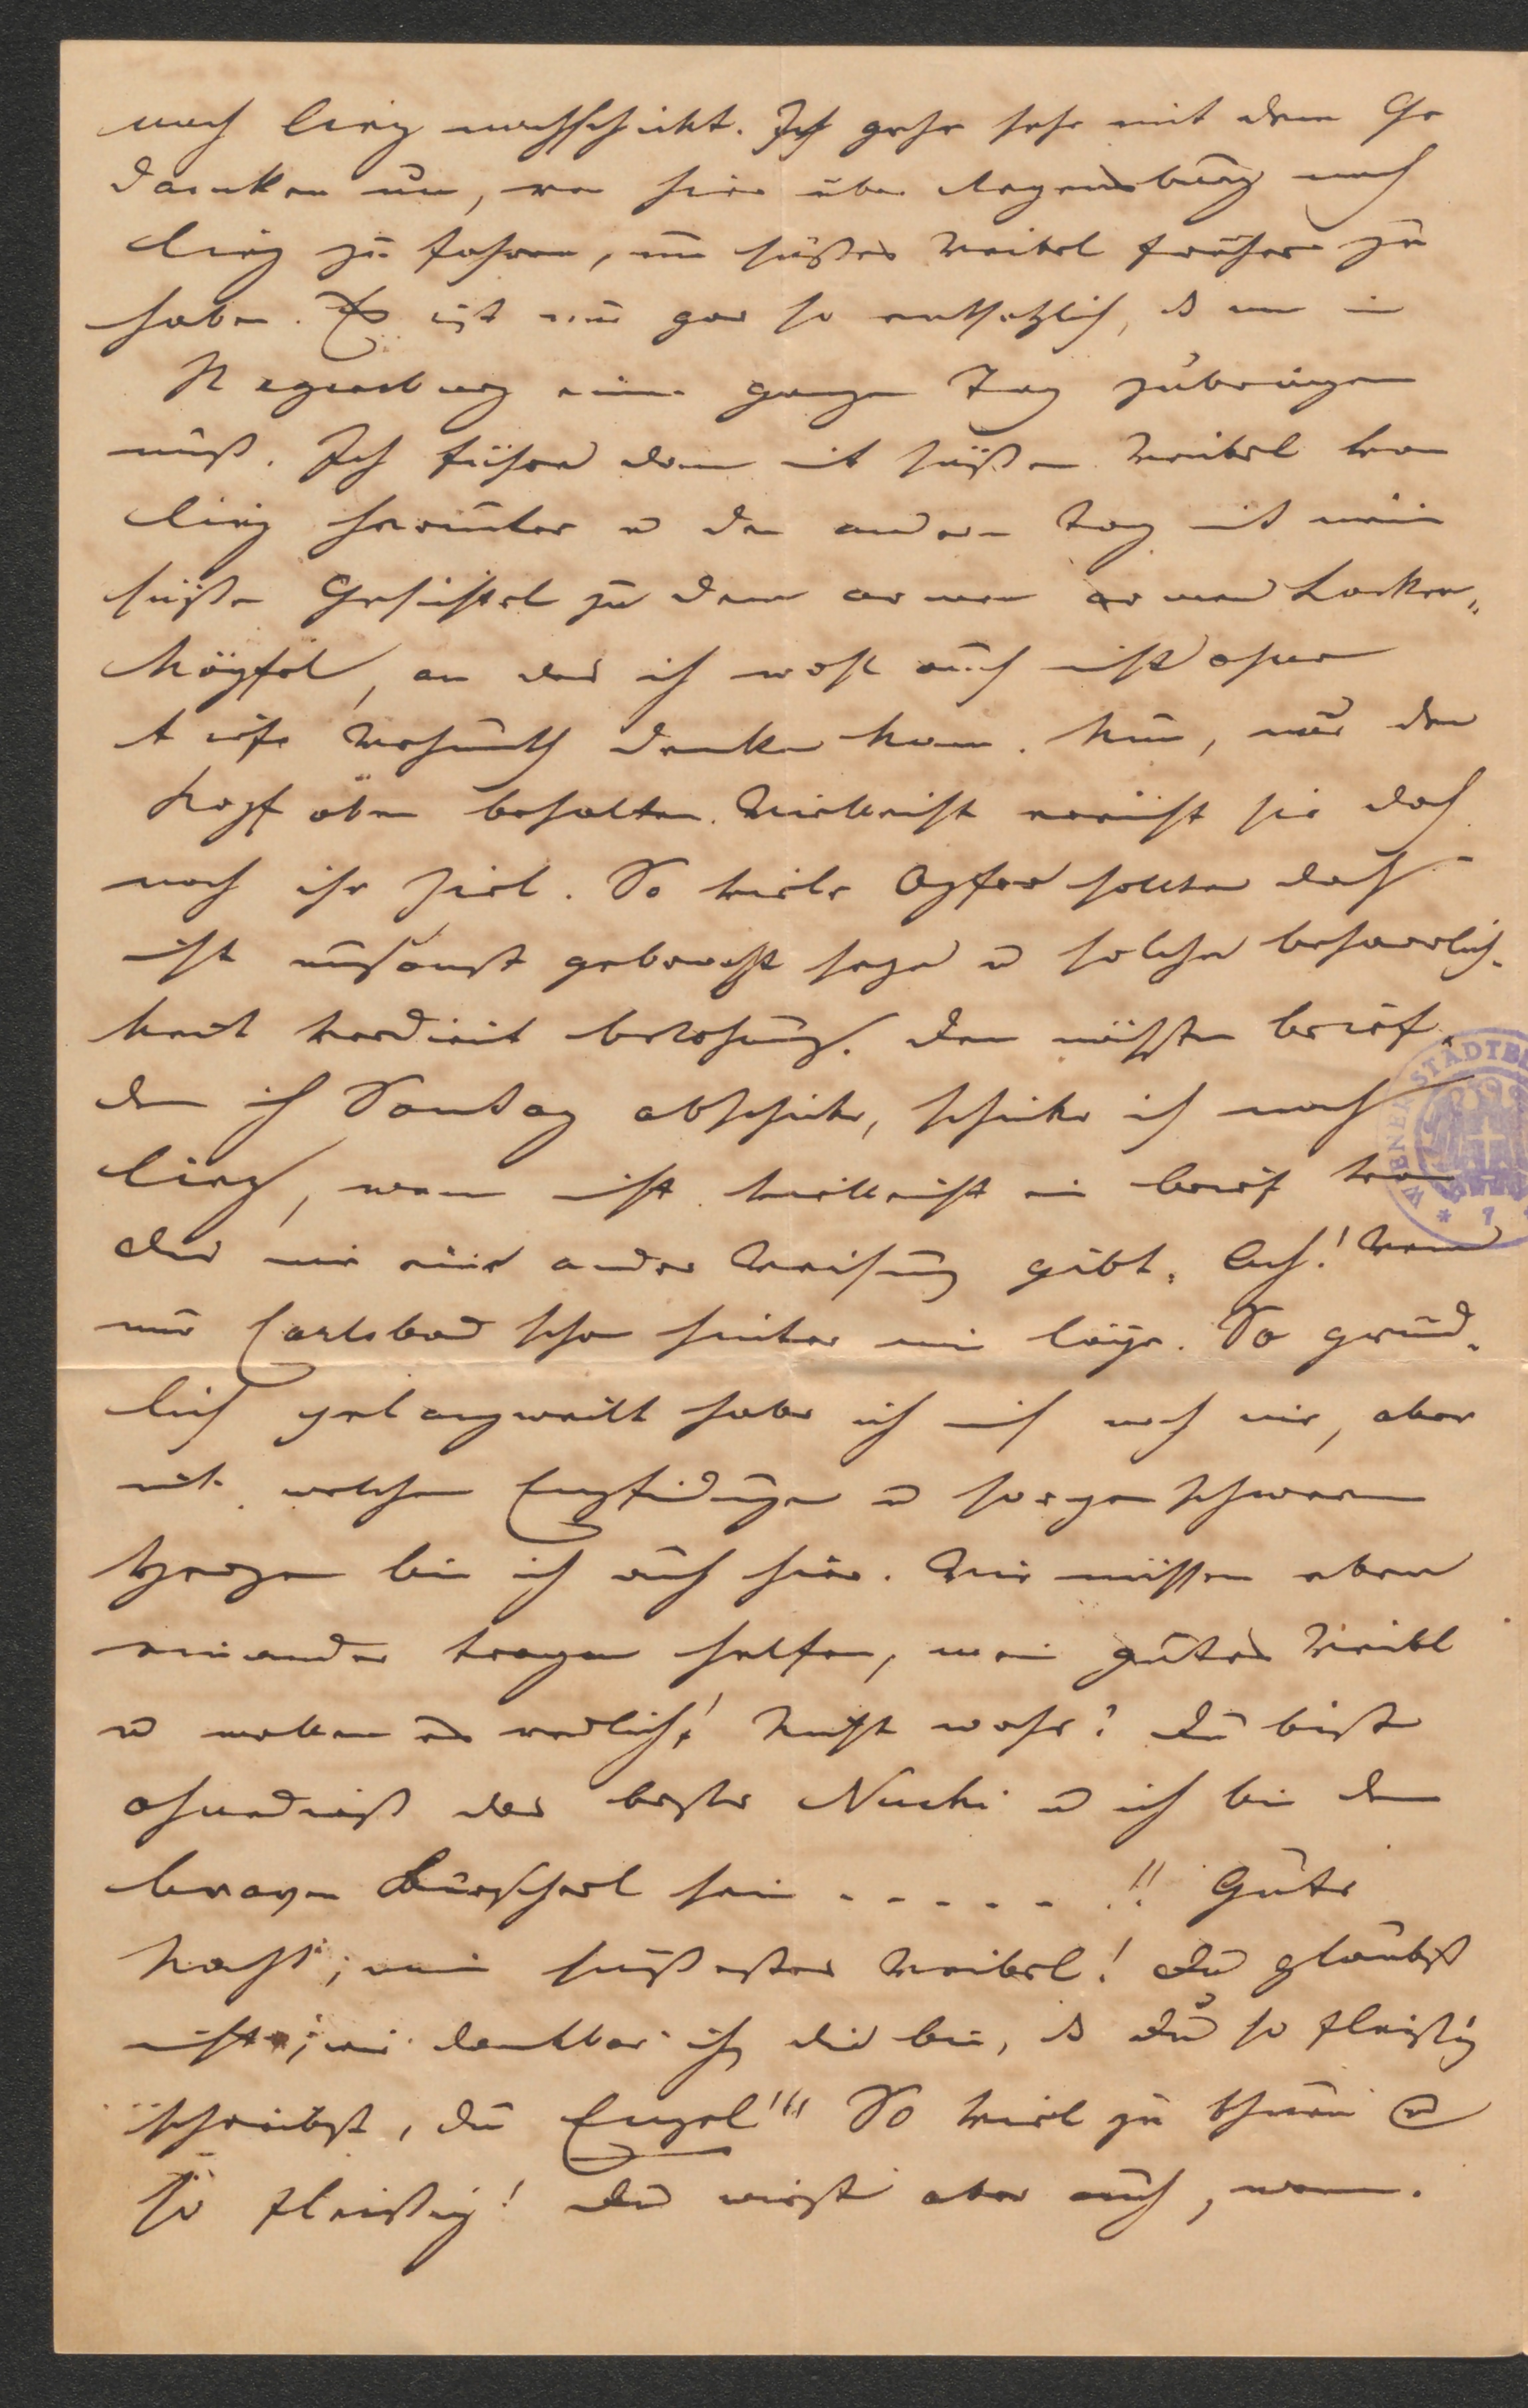 nach Linz nachschickt. Ich gehe sehr mit dem Ge
danken um, von hier über Regensburg nach
Linz zu fahren, um süßes Weibel früher zu
haben. Es ist nur gar so entsetzlich, ds man in
Regensburg einen ganzen Tag zubringen
muß. Ich führe dann mit süßen Weibel von
Linz herunter u den andern Tag mit mein
süßen Gesichtel zu dem armen armen Locken„
köpfel, an das ich wohl auch nicht ohne
tiefe Wehmuth denken kann. Nun, nur den
Kopf oben behalten. Vielleicht erreicht sie doch
noch ihr Ziel. So viele Opfer sollten doch
nicht umsonst gebracht seyn u solche Beharrlich-
keit verdient Belohnung. Den nächsten Brief,
den ich Sontag abschicke, schicke ich nach
Linz, wenn nicht vielleicht ein Brief von
dir mir eine andre Weisung gibt. Ach! Wenn
nur Carlsbad schon hinter mir läge. So gründ-
lich gelangweilt habe ich mich noch nie, aber
mit welchen Empfindungen u sorgenschweren
Herzen bin ich auch hier. Wir müssen eben
einander tragen helfen, mein gutes Weibl
u wollen es redlich! Nicht wahr? Du bist
ohnedieß das beste Nucki u ich bin dein
braves Bürscherl sein - - - - - - !! Gute
Nacht, mein süßestes Weibel! Du glaubst
nicht, wie dankbar ich dir bin, ds Du so fleißig
schreibst, du Engel!!! So viel zu thun u
so fleißig! Du wirst aber auch, wenn